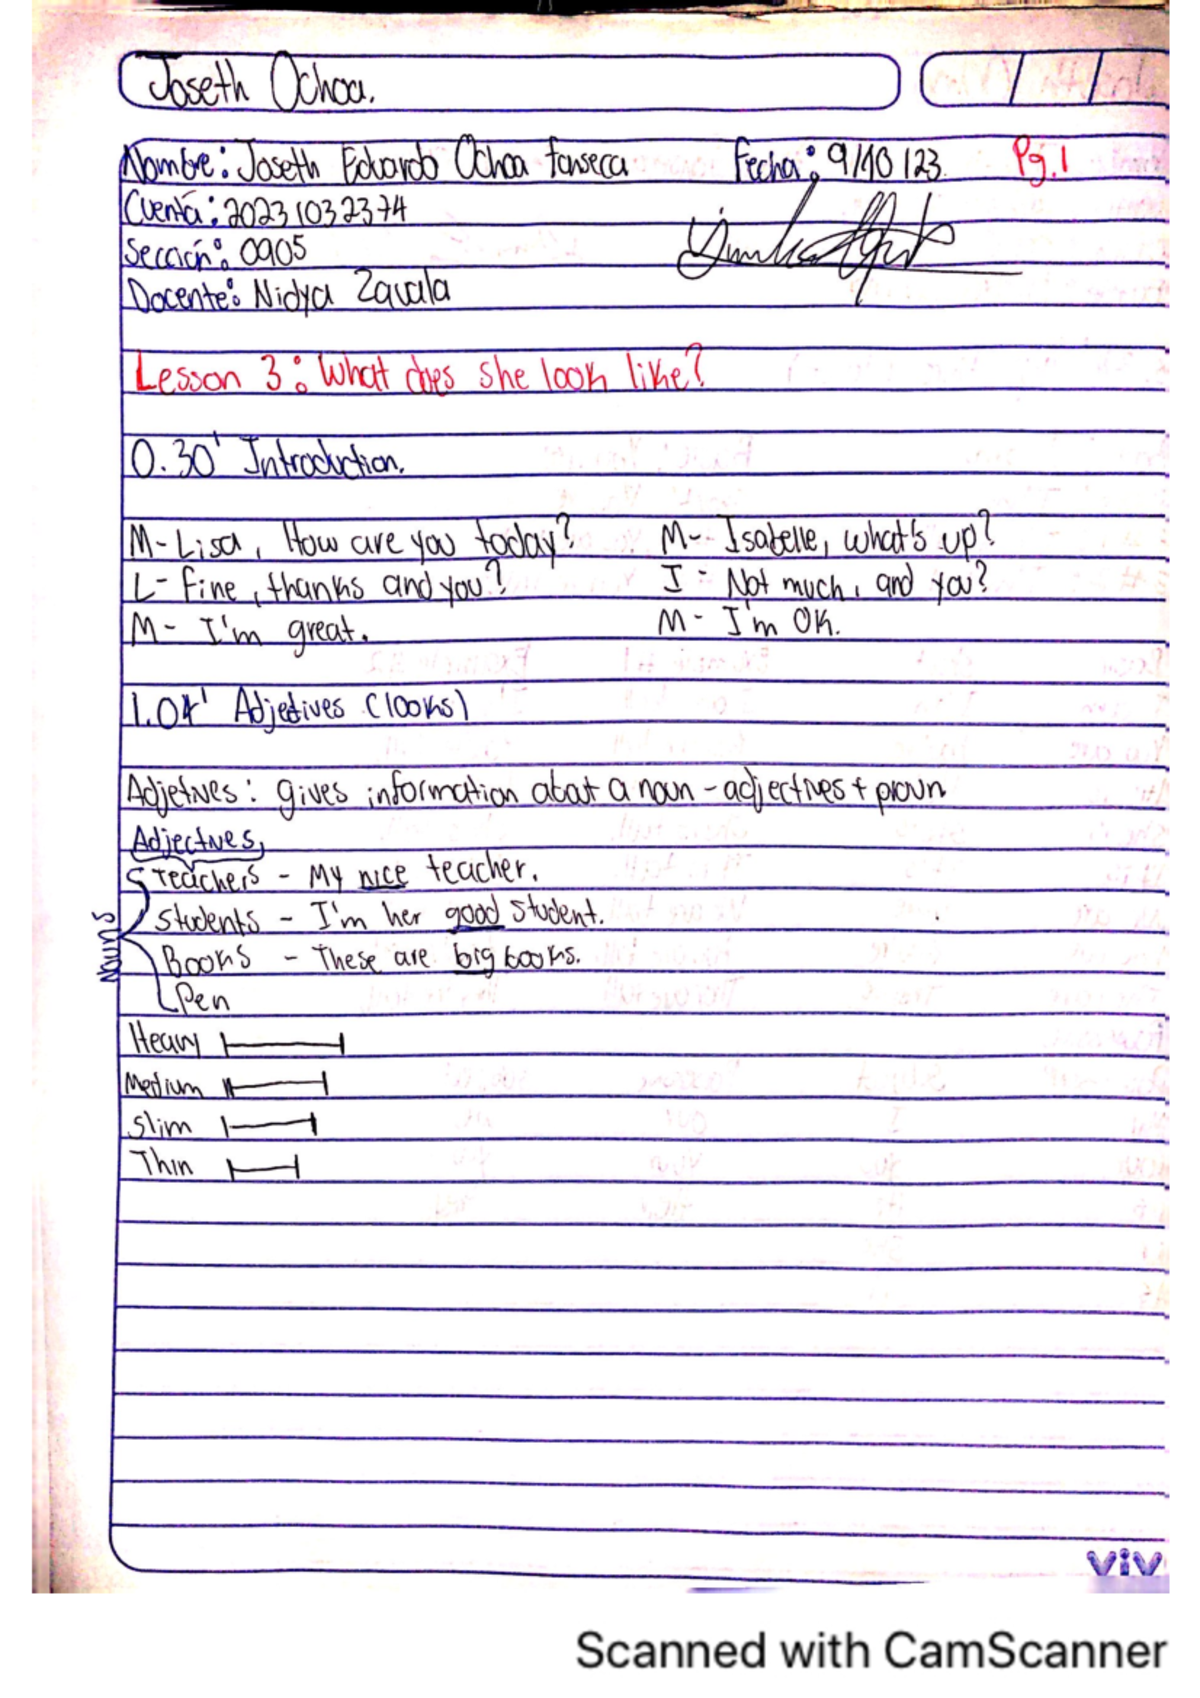 Joseth Ochoa.
Nombre: Joseth Eduardo Ochoa Fonseca Fecha: 9/10/23 Pg.1
Cuenta: 20231032374
Sección: 0905
Docente: Nidya Zavala
Lesson 3: What does she look like?
0.30' Introduction.
M- Lisa, How are you today?
L- Fine, thanks and you?
M- I'm great.
M- Isabelle, what's up?
I - Not much, and you?
M- I'm OK.
1.04' Adjetives (looks)
Adjetives: gives information about a noun - adjectives + proun
Adjectives,
Nouns
Teachers - My nice teacher.
Students - I'm her good student.
Books - These are big books.
Pen
Heavy
Medium
Slim
Thin
viv
Scanned with CamScanner